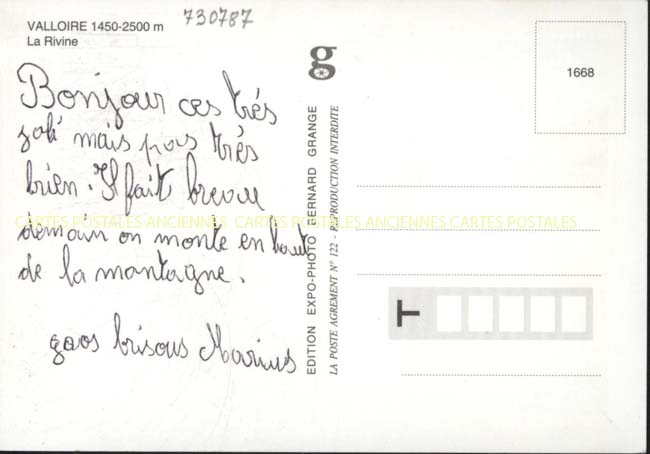 730787
VALLOIRE 1450-2500 m
La Rivine
Bonjour ces très
joli mais pas très
bien. Il fait
demain on monte en haut
de la montagne.
gros bisous Marius
CARTES POSTALES ANCIENNES CARTES POSTALES ANCIENNES CARTES POSTALES
g
EDITION EXPO-PHOTO BERNARD GRANGE
LA POSTE AGREMENT N° 122 - REPRODUCTION INTERDITE
1668